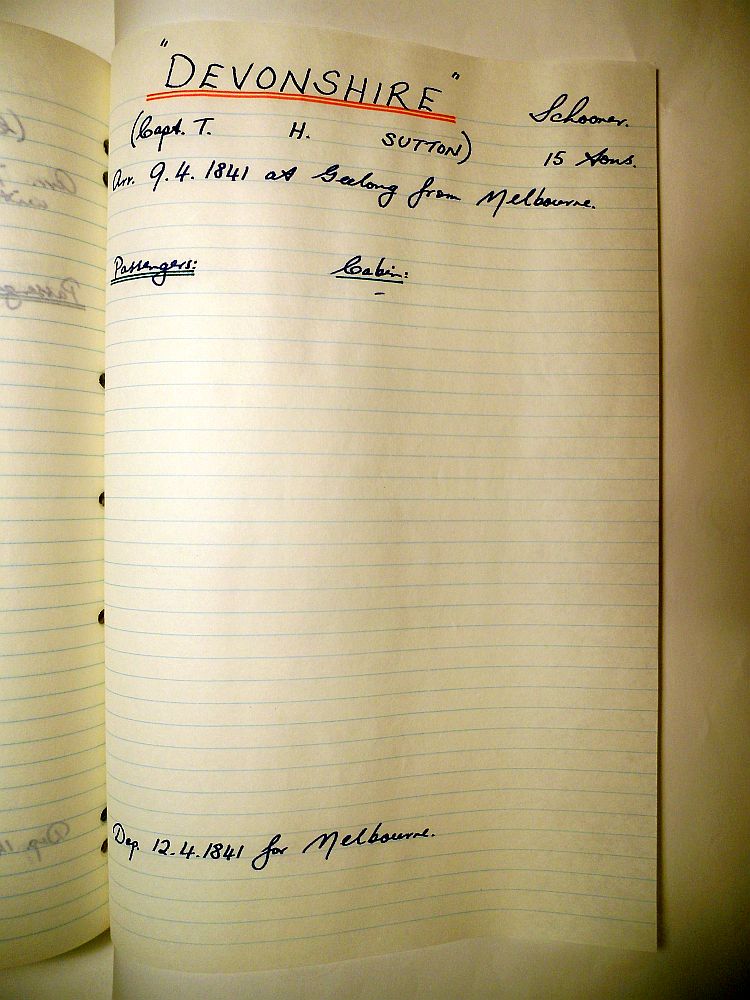 "DEVONSHIRE"
Schooner.
(Capt. T. H. SUTTON)
15 tons.
Arr. 9.4.1841 at Geelong from Melbourne.
Passengers: Cabin:
–
Dep. 12.4.1841 for Melbourne.